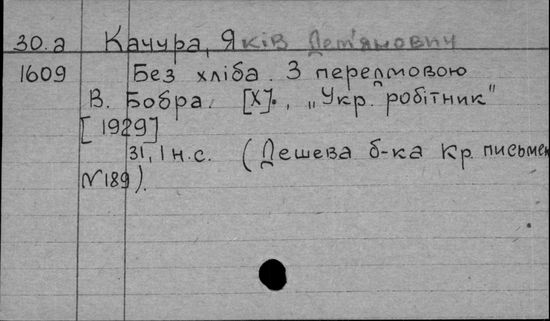 30.а Качура, Яків Дем'янович
1609 Без хліба. З передмовою
В. Бобра. [Х]., „Укр. робітник"
[1929]
31, 1 н.с. (Дешева б-ка кр. письмен
№189).